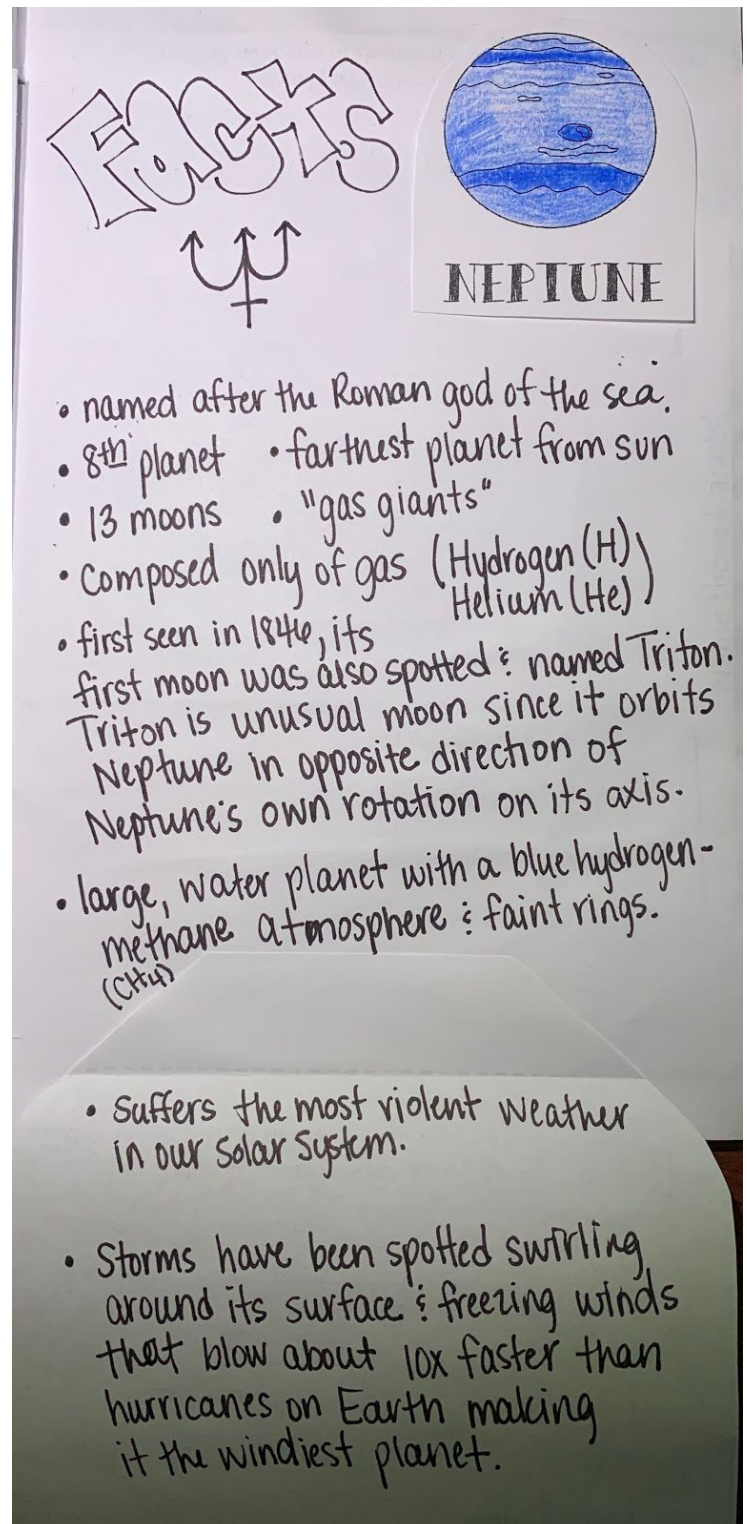 Facts
NEPTUNE
• named after the Roman god of the sea.
• 8th planet • farthest planet from sun
• 13 moons • "gas giants"
• Composed only of gas (Hydrogen (H)
Helium (He))
• first seen in 1846, its
first moon was also spotted & named Triton.
Triton is unusual moon since it orbits
Neptune in opposite direction of
Neptune's own rotation on its axis.
• large, water planet with a blue hydrogen-
methane atmosphere & faint rings.
(CH4)
• Suffers the most violent weather
in our Solar System.
• Storms have been spotted swirling
around its surface & freezing winds
that blow about 10x faster than
hurricanes on Earth making
it the windiest planet.